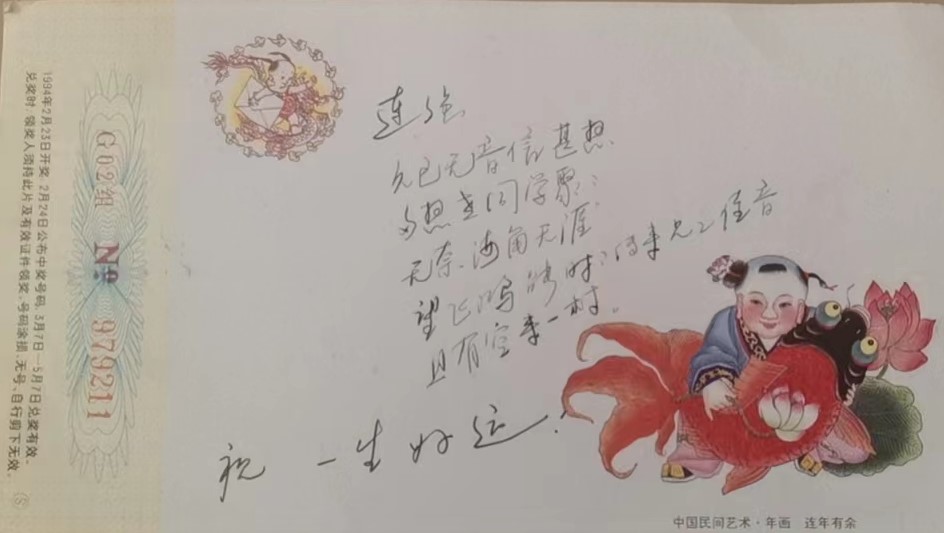 1994年2月23日开奖,2月24日公布中奖号码,3月7日—5月7日兑奖有效。
兑奖时,领奖人须持此片及有效证件领奖,号码涂损、无号、自行剪下无效。
G02组 No 979211
连强
久已无音信 甚想
与想老同学聚
无奈、海角天涯
望飞鸿时时传来兄之佳音
且有空来一封。
祝 一生好运!
中国民间艺术·年画 连年有余